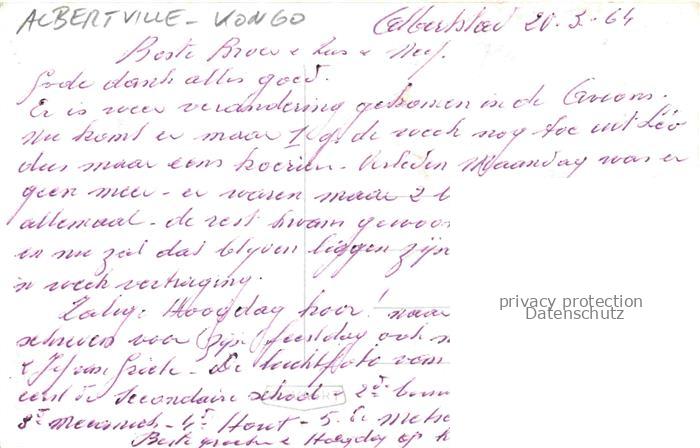 ALBERTVILLE - KONGO
Albertstad 20.3.-64
Beste Broer & Zus & Neef.
Gode dank alles goed.
Er is weer verandering gekomen in de Avions.
Nu komt er maar 1 g. de week nog toe uit Léo
dus maar eens koerier - Verleden Maandag was er
geen meer - er waren maar 2
allemaal - de rest kwam gewoon
en nu zal dat blijven liggen zijn
week vertraging.
Zalig Hoogdag hoor! maar
schrijven voor zijn feestdag ook
& Jef van - De luchtfoto van
eerst de secondaire school - 2e
3e - 4e Hout - 5. de
Beste groeten & Hoogdag op
privacy protection
Datenschutz